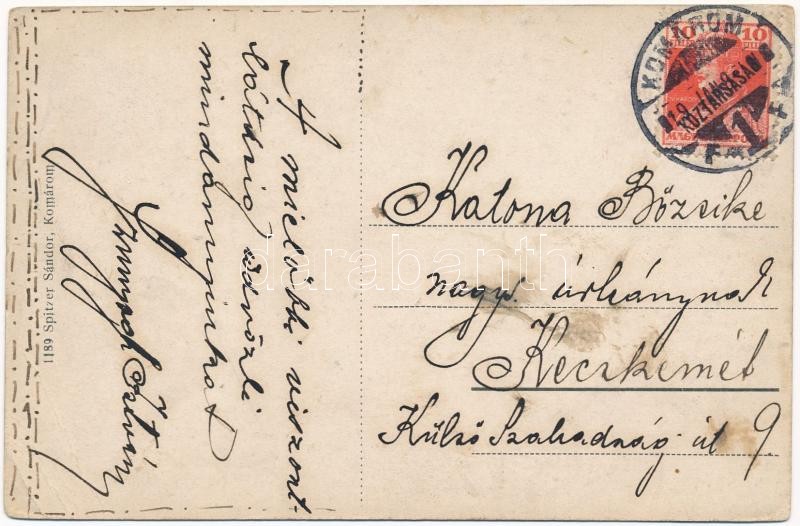 A mielőbbi viszont-
látásig üdvözli
mindannyiukat
István
1189 Spitzer Sándor, Komárom
KOMÁROM
10 10
KÖZTÁRSASÁG
Katona Bőzsike
nagys. úrleánynak
Kecskemét
Külső Szabadság út 9.
darabanth